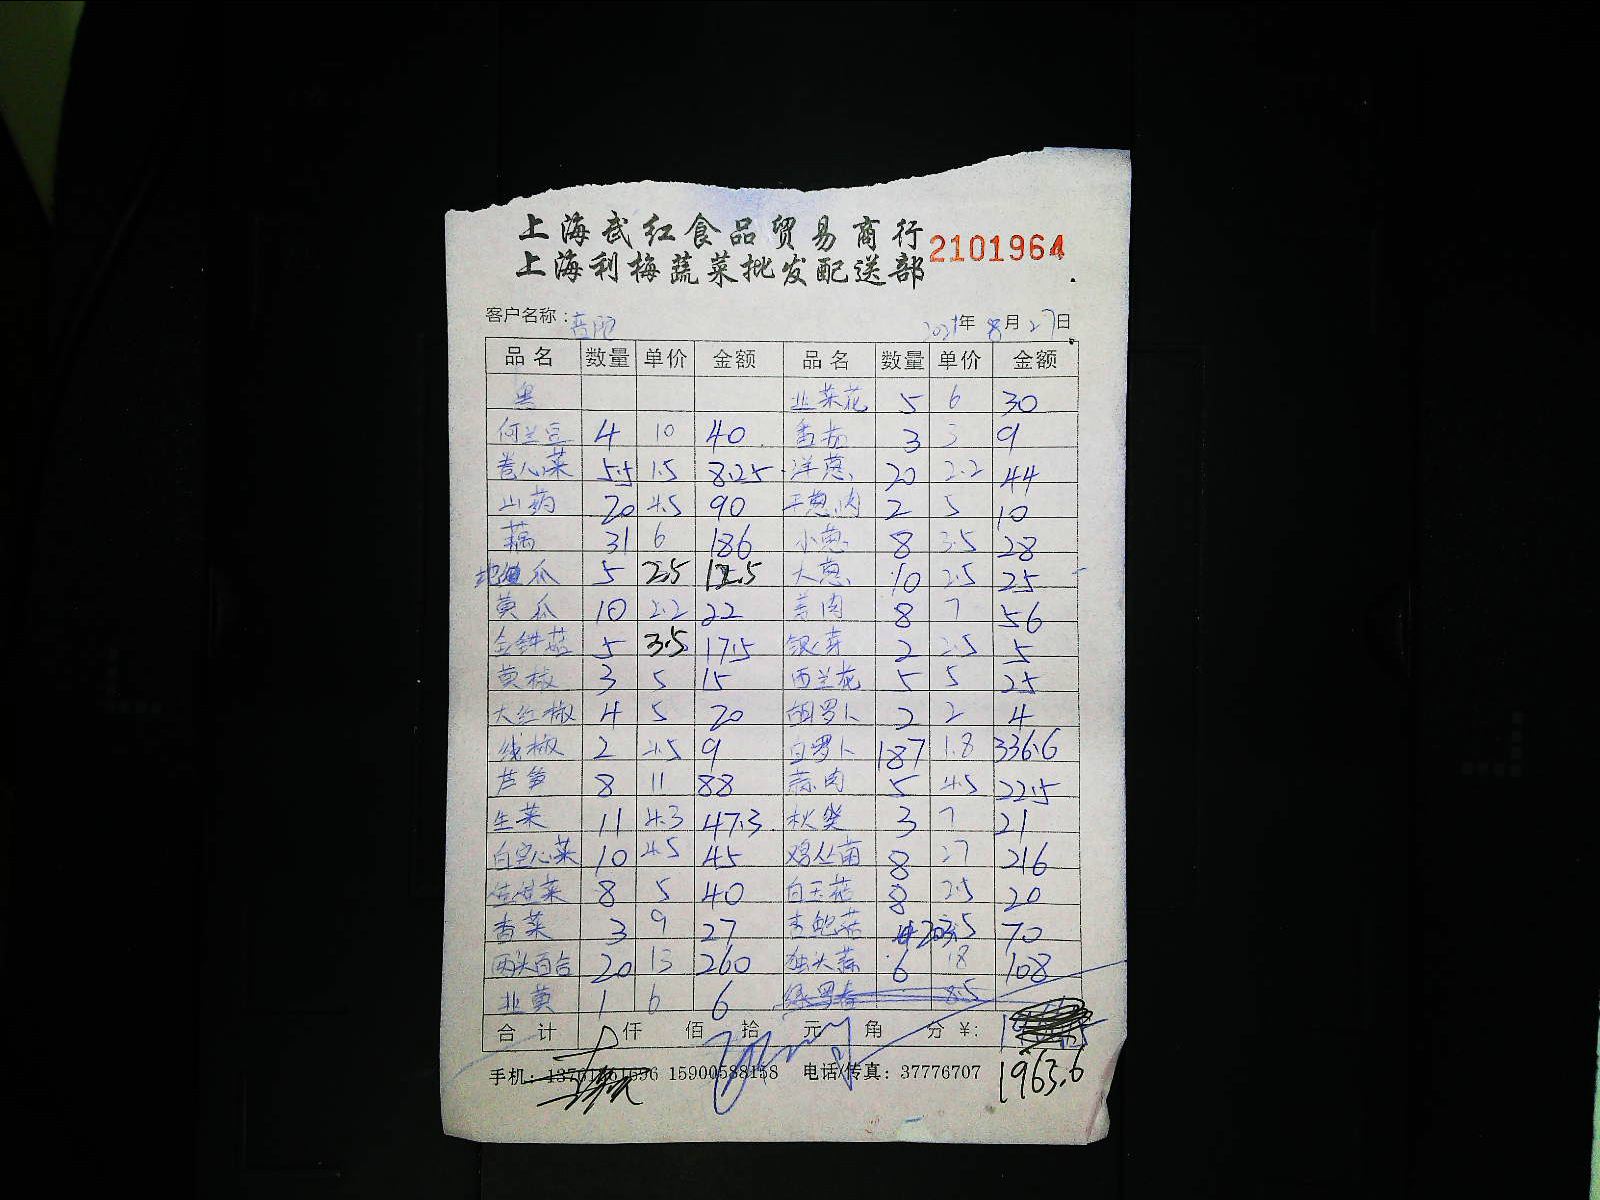 上海武红食品贸易商行
上海利梅蔬菜批发配送部 2101964
客户名称： 2021年8月27日
品名 数量 单价 金额 品名 数量 单价 金额
粤 韭菜花 5 6 30
何兰豆 4 10 40 番茄 3 3 9
卷心菜 5.5 1.5 8.25 洋葱 20 2.2 44
山药 20 4.5 90 干葱肉 2 5 10
藕 31 6 186 小葱 8 3.5 28
地瓜 5 2.5 12.5 大葱 10 2.5 25
黄瓜 10 2.2 22 姜肉 8 7 56
金针菇 5 3.5 17.5 银芽 2 2.5 5
黄椒 3 5 15 西兰花 5 5 25
大红椒 4 5 20 胡罗卜 2 2 4
线椒 2 4.5 9 白罗卜 187 1.8 336.6
芦笋 8 11 88 蒜肉 5 4.5 22.5
生菜 11 4.3 47.3 秋葵 3 7 21
白空心菜 10 4.5 45 鸡丛菌 8 27 216
菜 8 5 40 白玉菇 8 2.5 20
香菜 3 9 27 杏鲍菇 20 3.5 70
两头百合 20 13 260 独头蒜 6 18 108
韭黄 1 6 6 8.5
合计 仟 佰 拾 元 角 分 ¥:
1963.6
手机： 15900588158 电话/传真：37776707